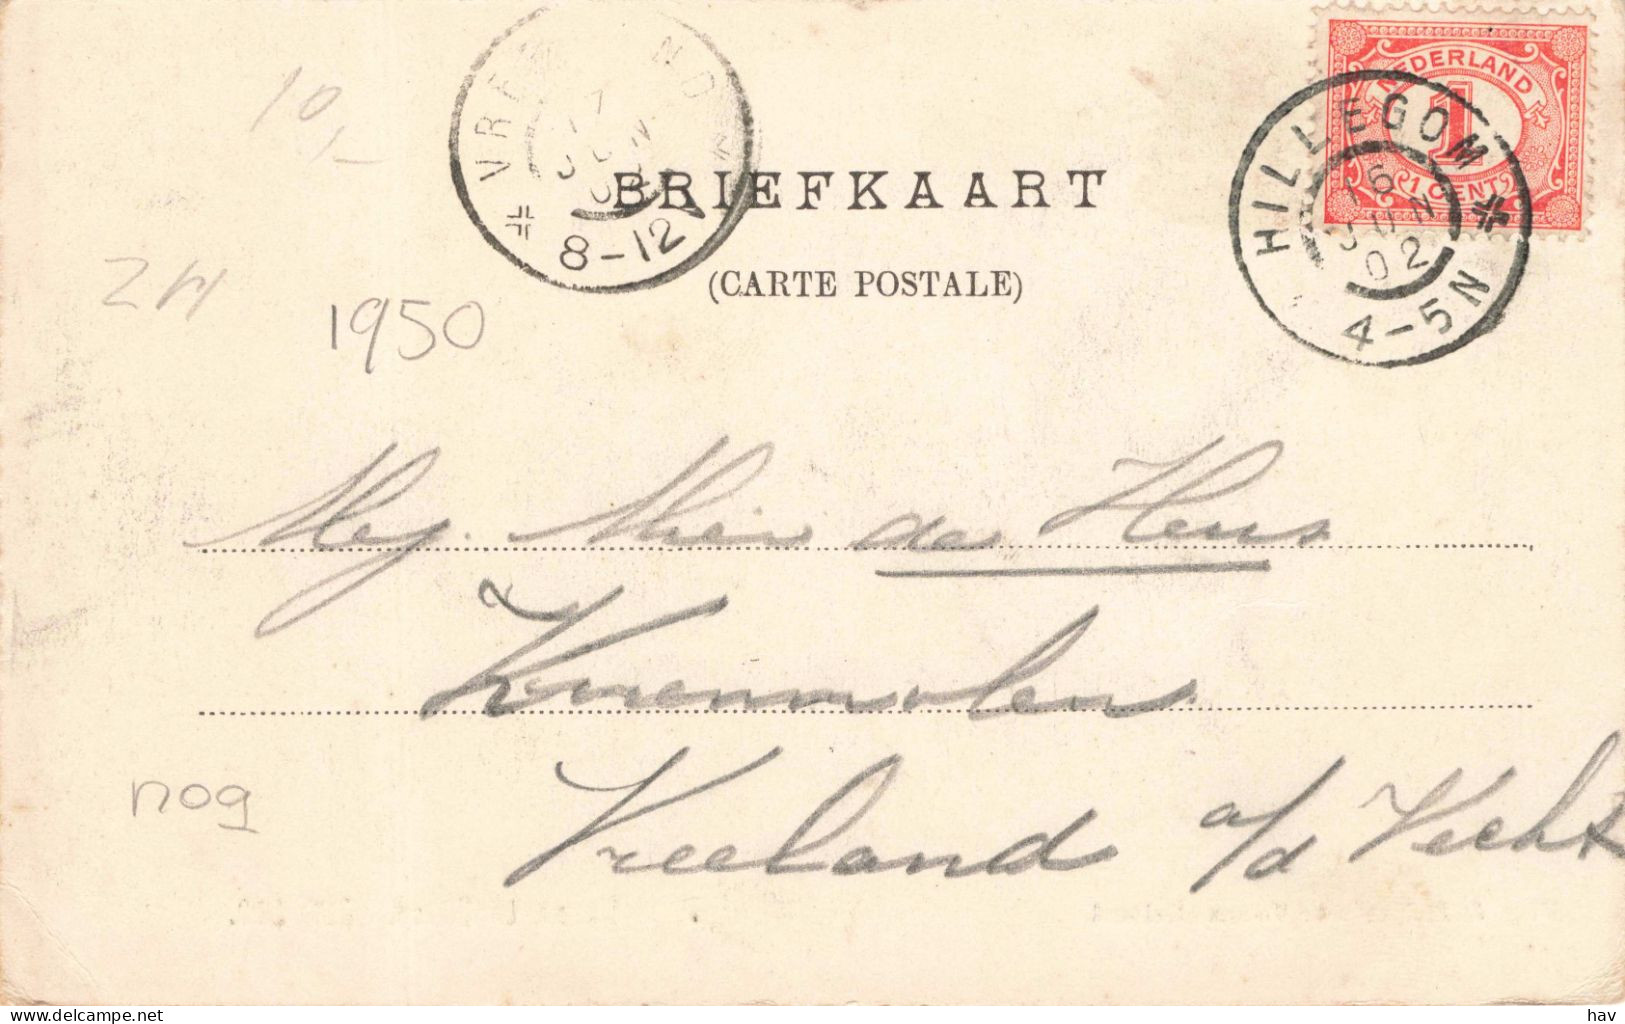 10,-
VRE ND
17
JUN
8-12
NEDERLAND
1
1 CENT
HILLEGOM
16
JUN
02
4-5N
BRIEFKAART
(CARTE POSTALE)
ZH
1950
Mej. Mien de Heus
Korenmolen
nog
Vreeland a/d Vecht
www.delcampe.net
hav